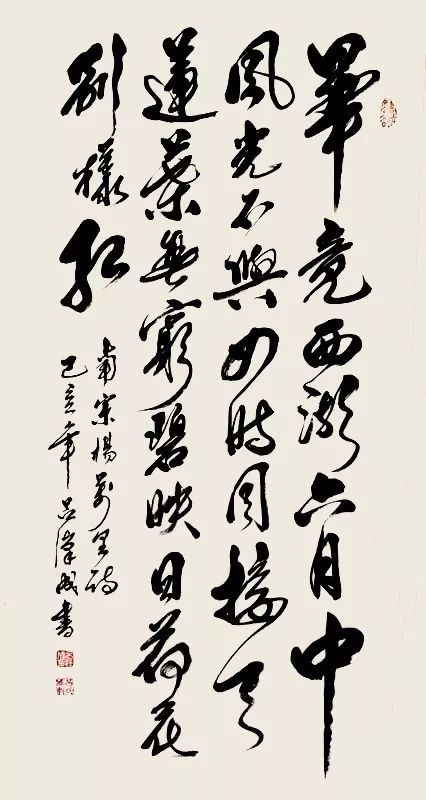 畢竟西湖六月中
風光不與四時同接天
蓮葉無窮碧映日荷花
別樣紅
南宋楊萬里詩
己亥年書